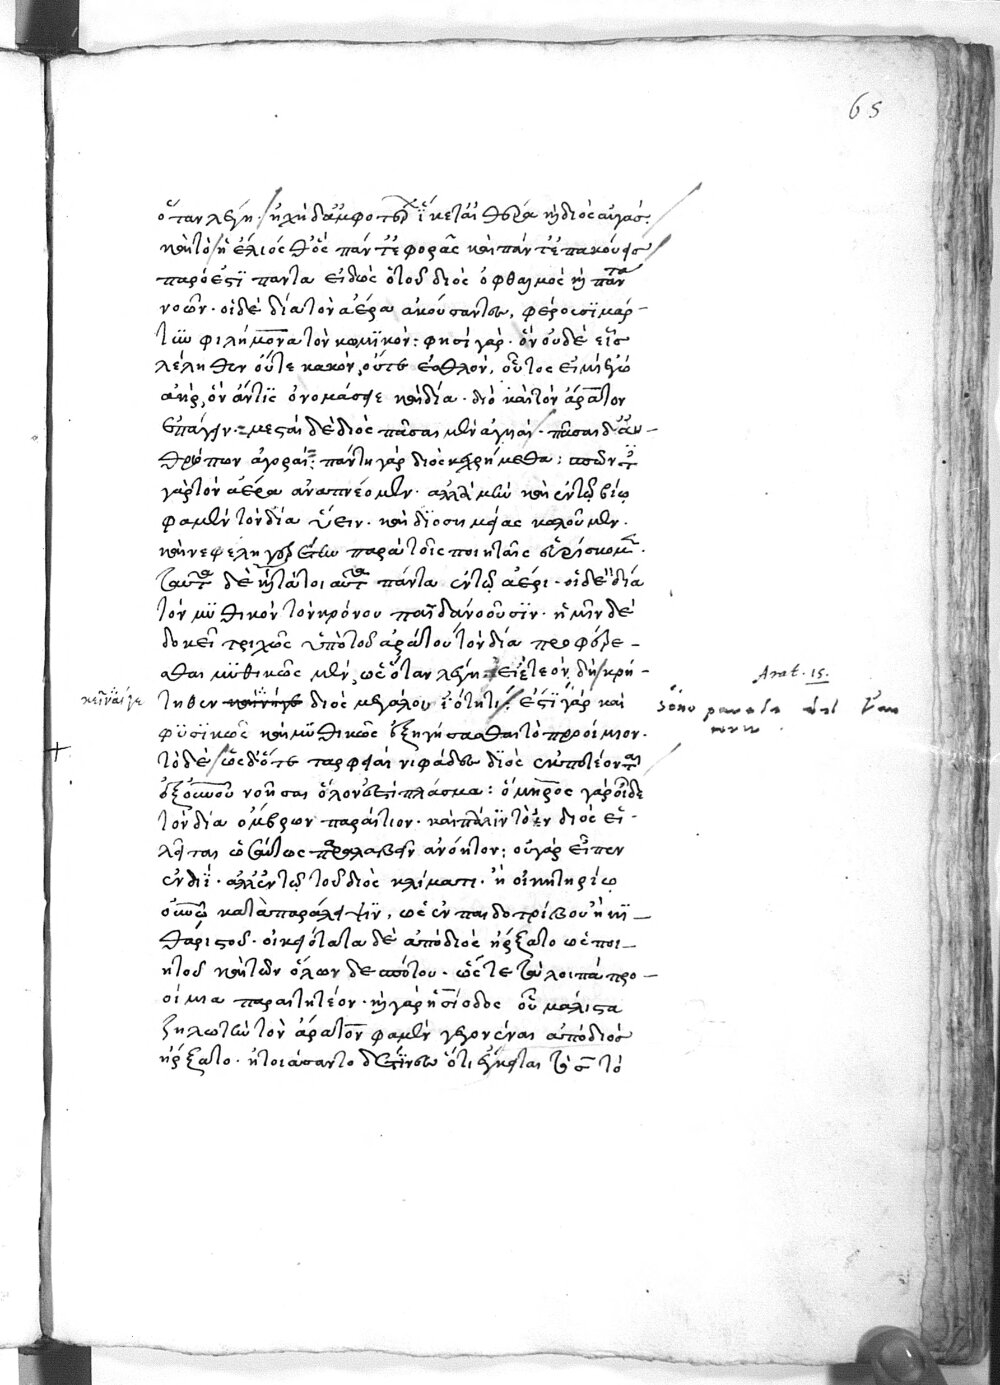 65
ὅταν λέγῃ· ἠχὴ δ' ἀμφοτέρων ἵκετ' αἰθέρα καὶ διὸς αὐγάς·
καὶ τὸ ἠέλιός θ' ὃς πάντ' ἐφορᾷς καὶ πάντ' ἐπακούεις
πάρεστι πάντα εἰδὼς ὁ τοῦ διὸς ὀφθαλμὸς καὶ πάντα
νοῶν· οἱ δὲ δία τὸν ἀέρα ἀκούσαντες, φέρουσι μάρ-
τυν φιλήμονα τὸν κωμικόν: φησὶ γάρ· ὃν οὐδὲ εἷς
λέληθεν οὔτε κακὸν, οὔτε ἐσθλόν, οὗτος εἰμὶ ἐγὼ
ἀὴρ, ὃν ἄν τις ὀνομάσειε καὶ δία· διὸ καὶ τὸν ἄρατον
ἐπάγειν· μεσταὶ δὲ διὸς πᾶσαι μὲν ἀγυιαὶ· πᾶσαι δ' ἀν-
θρώπων ἀγοραί· πάντη γὰρ διὸς κεχρήμεθα: ἅπαντες
γὰρ τὸν ἀέρα ἀναπνέομεν· ἀλλὰ μὴν καὶ ἐν τῷ βίῳ
φαμὲν τὸν δία ὕειν· καὶ διοσημείας καλοῦμεν·
καὶ νεφεληγερέτην παρὰ τοῖς ποιηταῖς εὑρίσκομεν·
ταῦτα δὲ καὶ τὰ τοιαῦτα πάντα ἐν τῷ ἀέρι· οἱ δὲ δία
τὸν μυθικὸν τὸν κρόνου παῖδα νοοῦσιν· ἡμῖν δὲ
δοκεῖ τριχῶς ὑπὸ τοῦ ἀράτου τὸν δία προφέρε-
σθαι μυθικῶς μὲν, ὡς ὅταν λέγῃ· εἰ ἐτεὸν δὴ κρή-
τηθεν διὸς μεγάλου ἰότητι· ἔστι γὰρ καὶ
κεῖναί γε
Arat. 15.
φυσικῶς καὶ μυθικῶς ἐξηγήσασθαι τὸ προίμιον·
τὸ δὲ ὡς δ' ὅτε ταρφειαὶ νιφάδες διὸς ἐκποτέονται
ἐξ οὐρανοῦ νοῆσαι ὅλον ἐστὶ πλάσμα: ὅμηρος γὰρ οἶδε
τὸν δία ὄμβρων παραίτιον· καὶ πάλιν τὸ ἐν διὸς εἰ-
λεῖται οὕτως προλαβεῖν ἀνόητον: οὐ γὰρ εἶπεν
ἐν διΐ· ἀλλ' ἐν τῷ τοῦ διὸς κλίματι· ἢ οἰκητηρίῳ
οὐρανῷ κατὰ παράλειψιν, ὡς ἐν παιδοτρίβου ἢ κι-
θαριστοῦ· οἰκειότατα δὲ ἀπὸ διὸς ἤρξατο ὡς ποι-
ητοῦ καὶ τῶν ὅλων δεσπότου· ὥστε τὰ λοιπὰ προ-
οίμια παραιτητέον· καὶ γὰρ ἡσίοδος οὗ μάλιστα
ζηλωτὴν τὸν ἄρατον φαμὲν γεγονέναι ἀπὸ διὸς
ἤρξατο· ἠτοιάσαντο δέ τινες ὅτι ἔγκειται τὸ